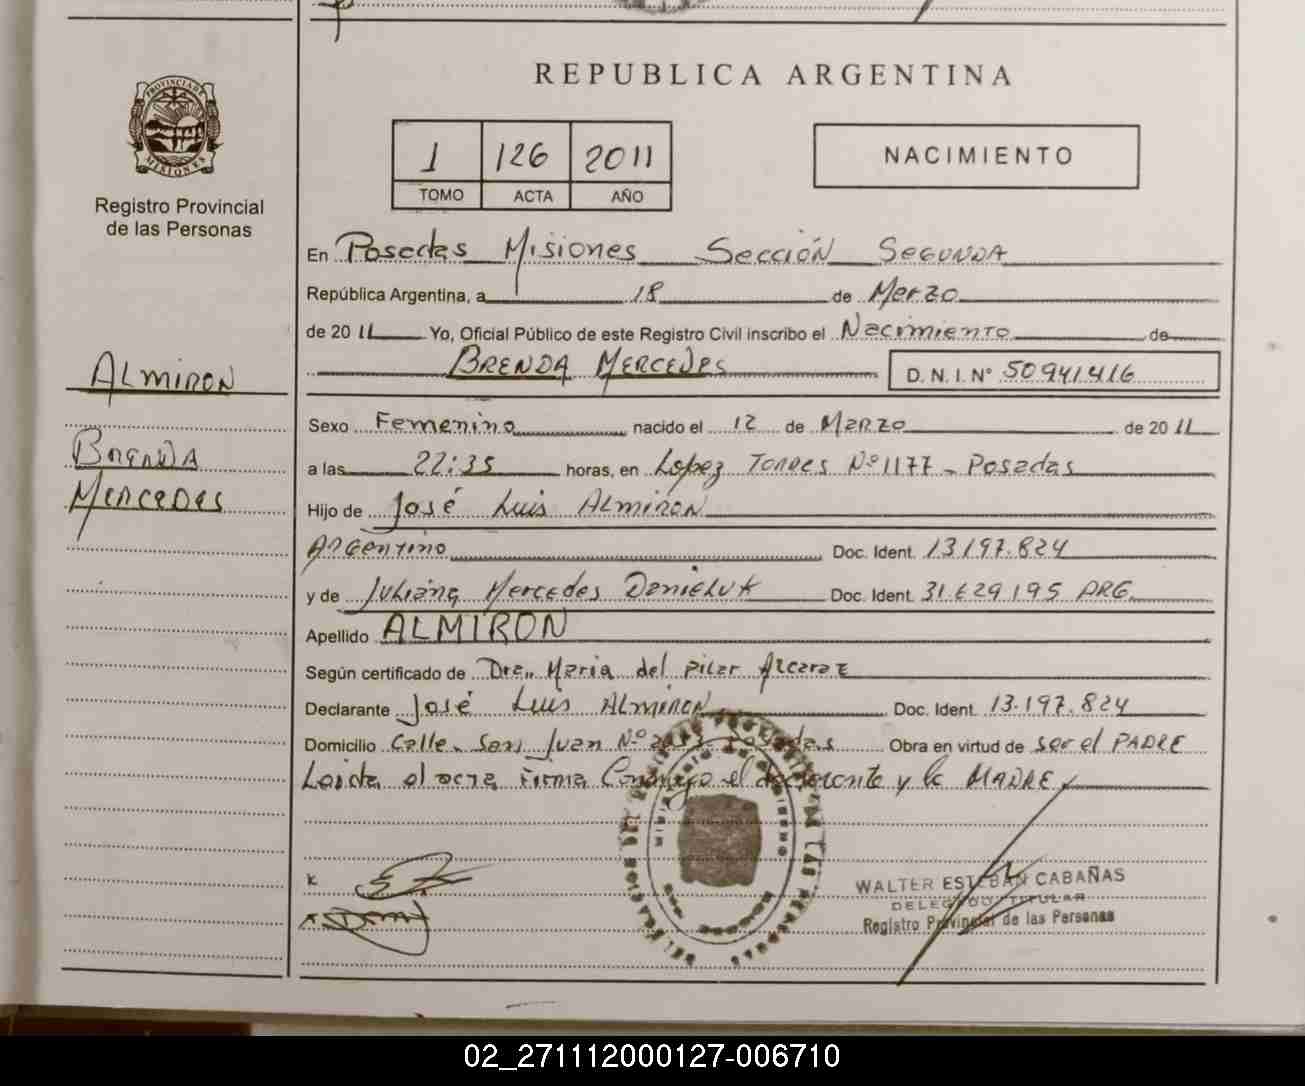 REPUBLICA ARGENTINA
PROVINCIA DE
MISIONES
Registro Provincial
de las Personas
1 126 2011
TOMO ACTA AÑO
NACIMIENTO
En Posadas Misiones Sección Segunda
República Argentina, a 18 de Marzo
de 2011 Yo, Oficial Público de este Registro Civil inscribo el Nacimiento de
BRENDA MERCEDES D. N. I. N° 50941416
ALMIRON
BRENDA
MERCEDES
Sexo Femenino nacido el 12 de Marzo de 2011
a las 22:35 horas, en Lopez Torres Nº 1177 - Posadas
Hijo de José Luis Almiron
Argentino Doc. Ident. 13197.824
y de Juliana Mercedes Danieluk Doc. Ident. 31629195 ARG.
Apellido ALMIRON
Según certificado de Dra. Maria del Pilar Alcaraz
Declarante José Luis Almiron Doc. Ident. 13.197.824
Domicilio Calle San Juan Nº Posadas Obra en virtud de ser el PADRE
Leida el acta Firma Conmigo el declarante y la MADRE
WALTER ESTEBAN CABAÑAS
DELEGADO TITULAR
Registro Provincial de las Personas
02_271112000127-006710